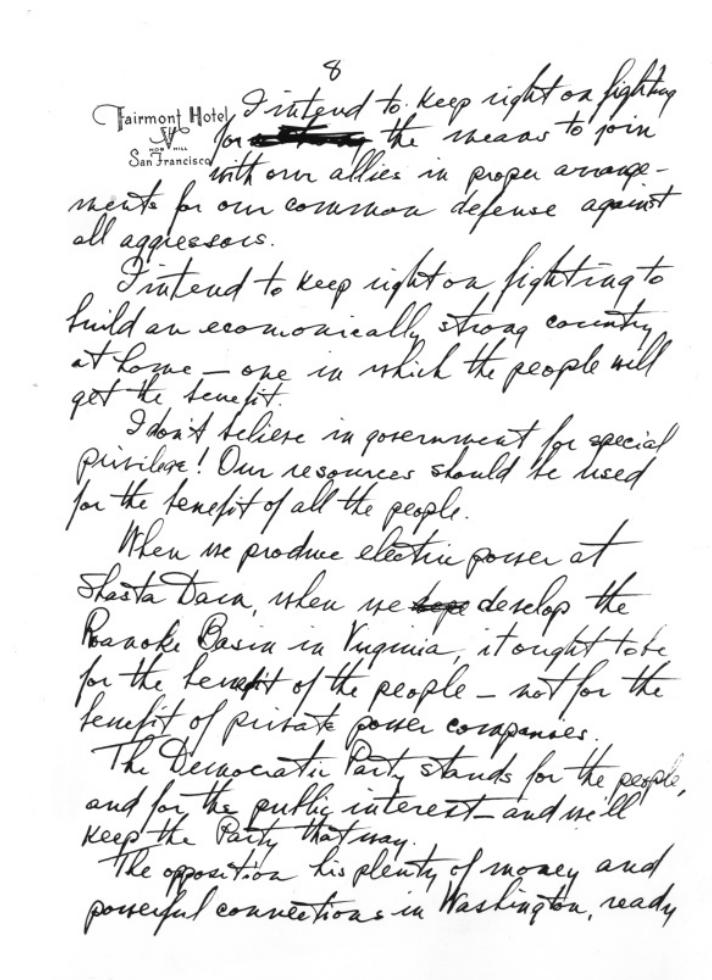 8
Fairmont Hotel
NOB HILL
San Francisco
I intend to keep right on fighting
for the means to join
with our allies in proper arrange-
ments for our common defense against
all aggressors.
I intend to keep right on fighting to
build an economically strong country
at home — one in which the people will
get the benefit.
I don't believe in government for special
privilege! Our resources should be used
for the benefit of all the people.
When we produce electric power at
Shasta Dam, when we develop the
Roanoke Basin in Virginia, it ought to be
for the benefit of the people — not for the
benefit of private power companies.
The Democratic Party stands for the people,
and for the public interest — and we'll
keep the Party that way.
The opposition his plenty of money and
powerful connections in Washington, ready